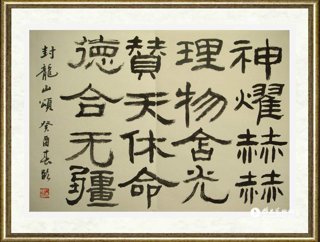 神燿赫赫
理物含光
贊天休命
德合无疆
封龍山頌 癸酉春